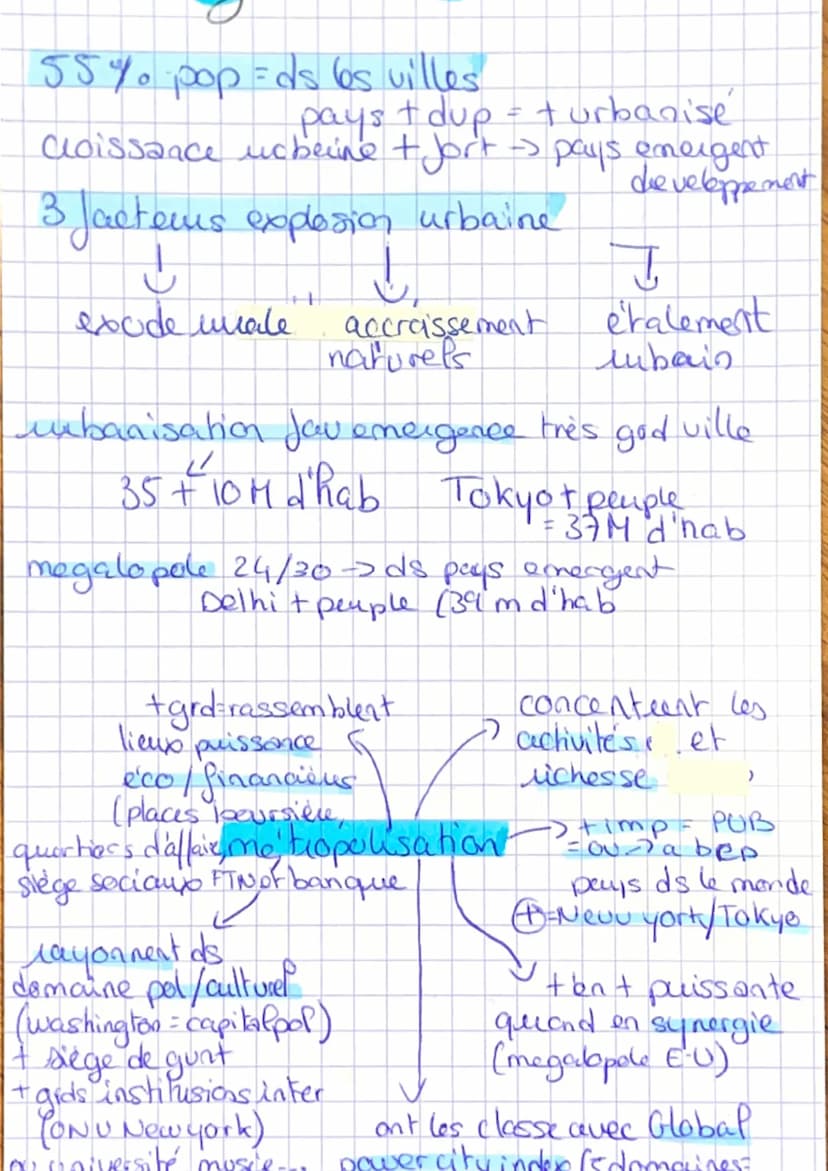 55% pop = ds les villes
pays + dvp = + urbanisé
croissance urbaine + fort -> pays emergent
developpement
3 facteurs explosion urbaine
exode rurale accroissement étalement
naturels urbain
urbanisation fav emergence très grd ville
35 + 10 M d'hab Tokyo + peuple
= 37M d'hab
megalopole 24/30 -> ds pays emergent
Delhi + peuple (39 m d'hab
+ grd = rassemblent concentrent les
lieux puissance activités et
éco/financières richesse
(places boursière,
quartiers d'affaire, métropolisation -> + imp = PUB
= ou -> a bep
siège sociaux FTN of banque pays ds le monde
⊕ = New york/Tokyo
rayonnent ds
domaine pol/culturel + en + puissante
(washington = capital pol) quand en synergie
+ siège de gvnt (megalopole E-U)
+ grds institusions inter
(ONU New york) ont les classe avec Global
université musée... power city index domaines =